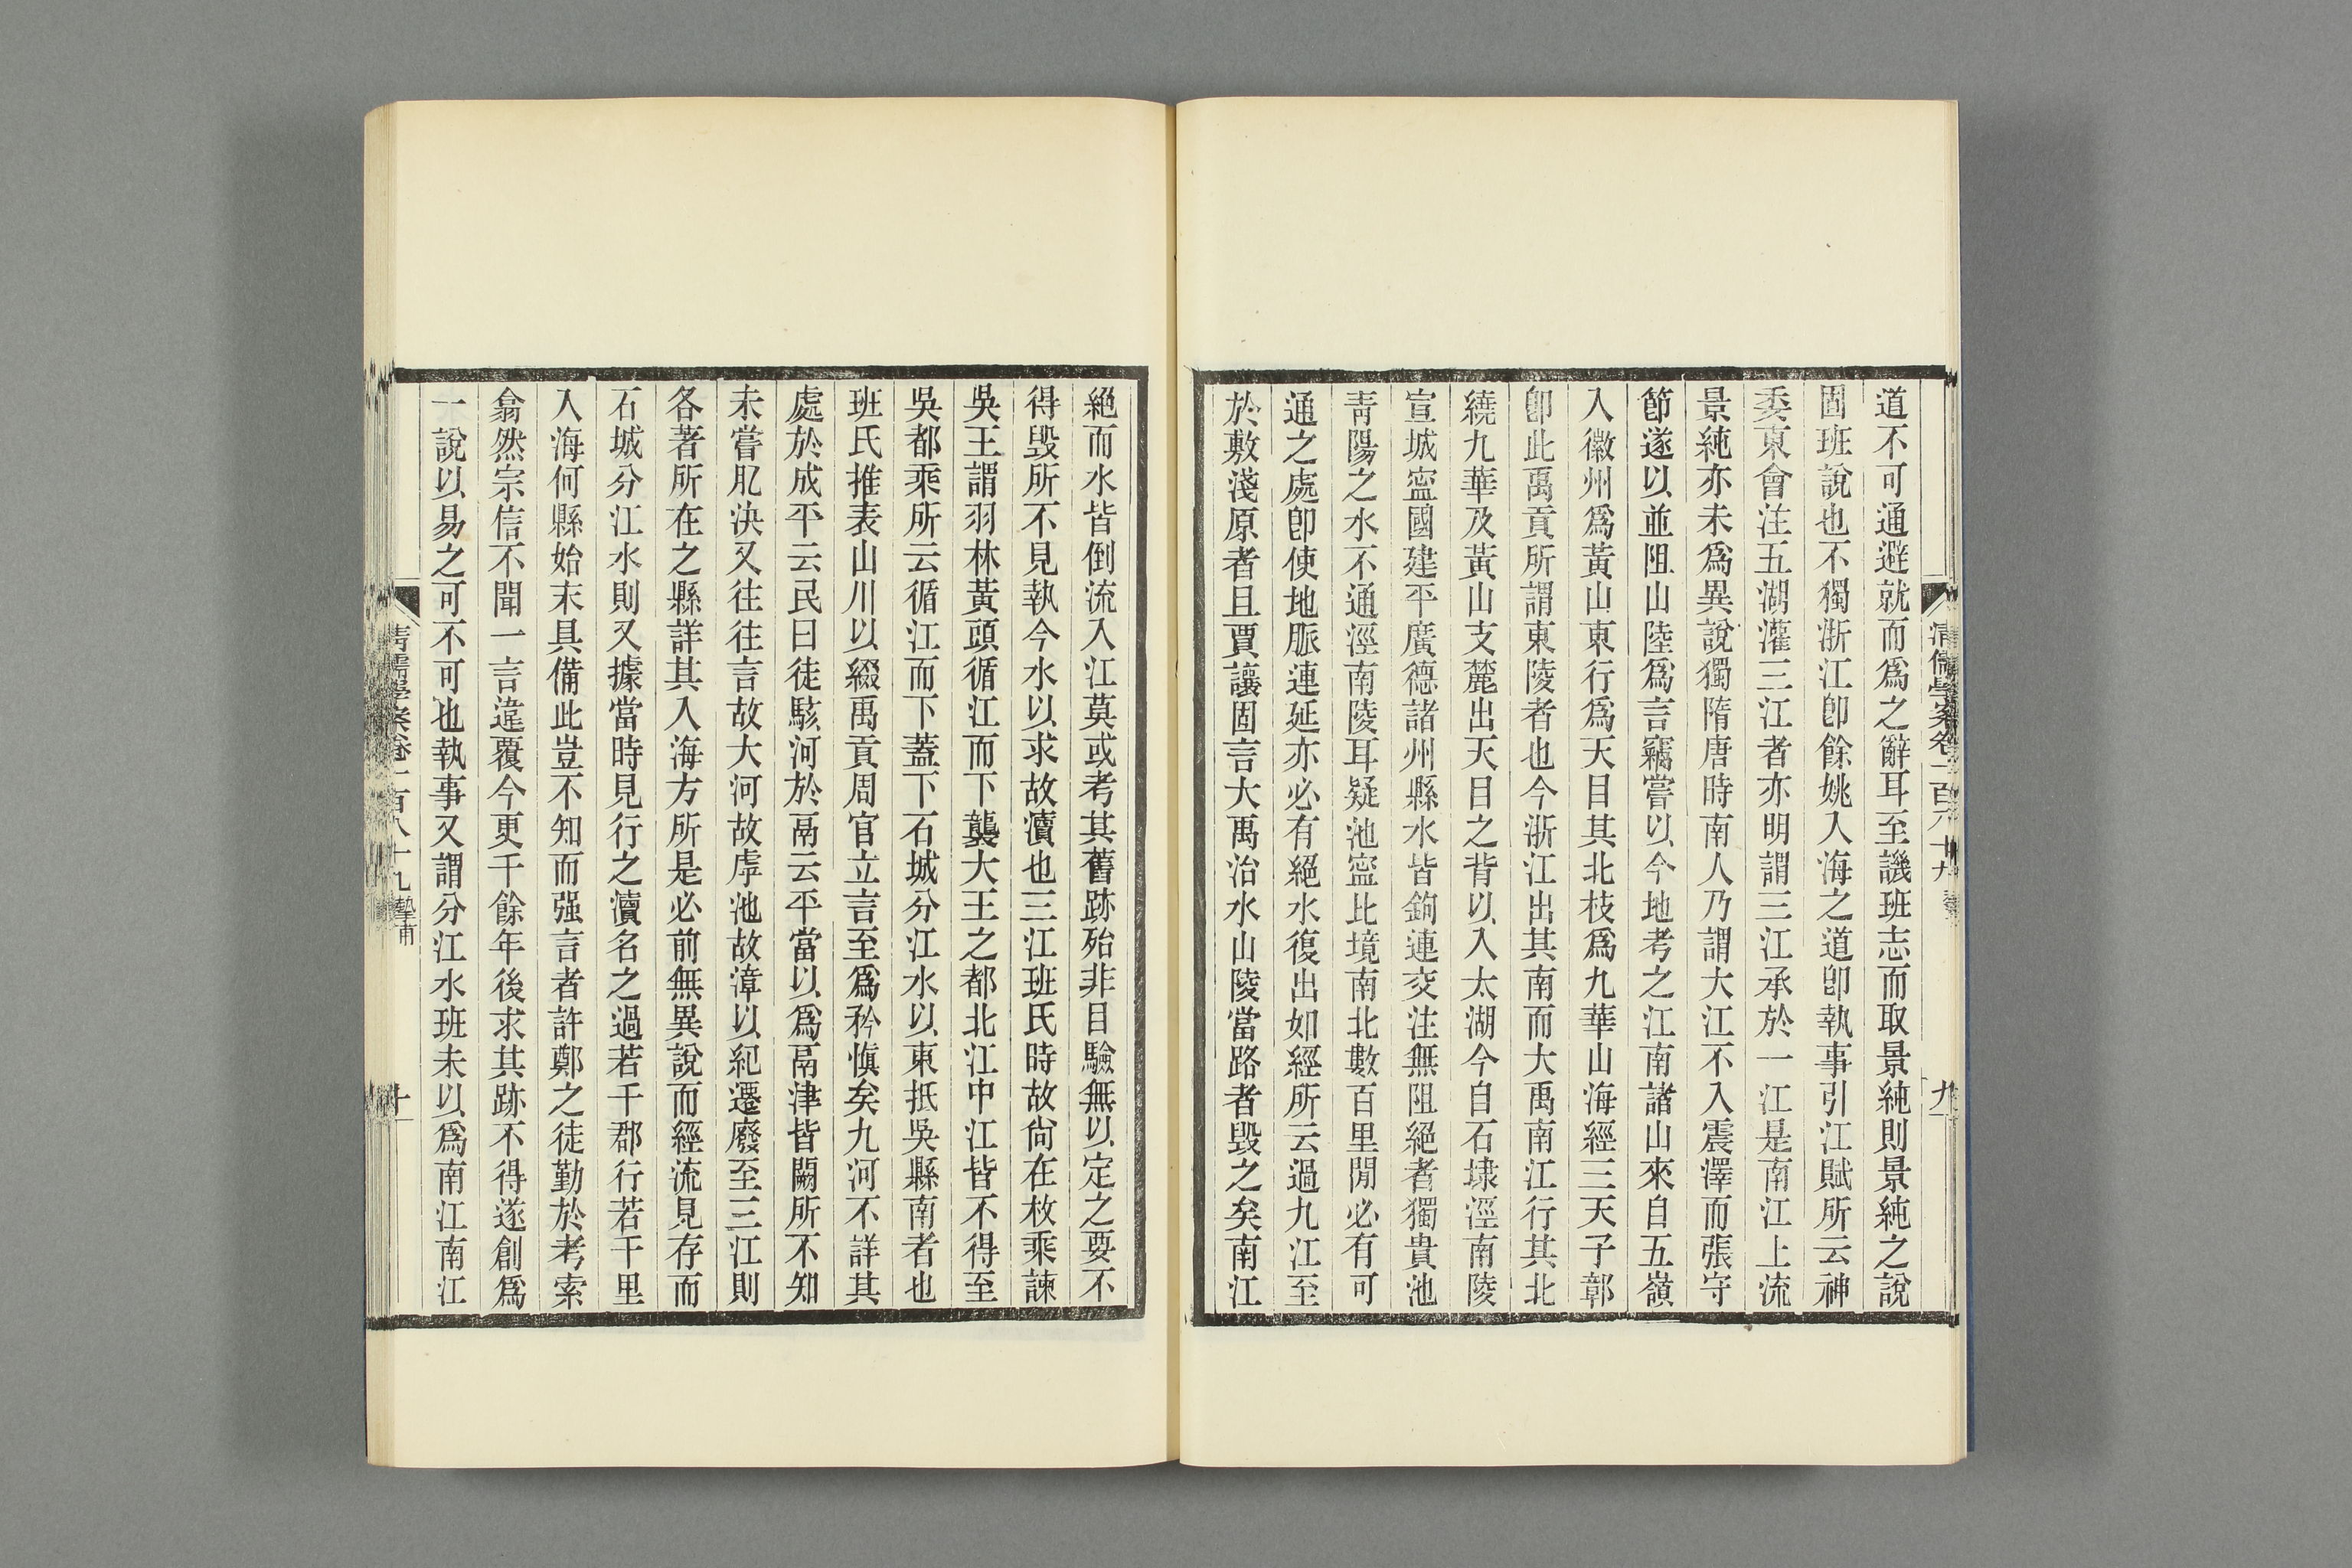 道不可通避就而爲之辭耳至譏班志而取景純則景純之說
固班說也不獨浙江卽餘姚入海之道卽執事引江賦所云神
委東會注五湖灌三江者亦明謂三江承於一江是南江上流
景純亦未爲異說獨隋唐時南人乃謂大江不入震澤而張守
節遂以並阻山陸爲言竊嘗以今地考之江南諸山來自五嶺
入徽州爲黃山東行爲天目其北枝爲九華山海經三天子鄣
卽此禹貢所謂東陵者也今浙江出其南而大禹南江行其北
繞九華及黃山支麓出天目之背以入太湖今自石埭涇南陵
宣城寍國建平廣德諸州縣水皆鉤連交注無阻絕者獨貴池
靑陽之水不通涇南陵耳疑池寍比境南北數百里閒必有可
通之處卽使地脈連延亦必有絕水復出如經所云過九江至
於敷淺原者且賈讓固言大禹治水山陵當路者毁之矣南江
清儒學案卷一百八十九
九
絕而水皆倒流入江莫或考其舊跡殆非目驗無以定之要不
得毁所不見執今水以求故瀆也三江班氏時故尙在枚乘諫
吳王謂羽林黃頭循江而下襲大王之都北江中江皆不得至
吳都乘所云循江而下蓋下石城分江水以東抵吳縣南者也
班氏推表山川以綴禹貢周官立言至爲矜愼矣九河不詳其
處於成平云民曰徒駭河於鬲云平當以爲鬲津皆闕所不知
未嘗肊決又往往言故大河故虖池故漳以紀遷廢至三江則
各著所在之縣詳其入海方所是必前無異說而經流見存而
石城分江水則又據當時見行之瀆名之過若干郡行若干里
入海何縣始末具備此豈不知而强言者許鄭之徒勤於考索
翕然宗信不聞一言違覆今更千餘年後求其跡不得遂創爲
一說以易之可不可也執事又謂分江水班未以爲南江南江
清儒學案卷一百八十九 摯甫
十